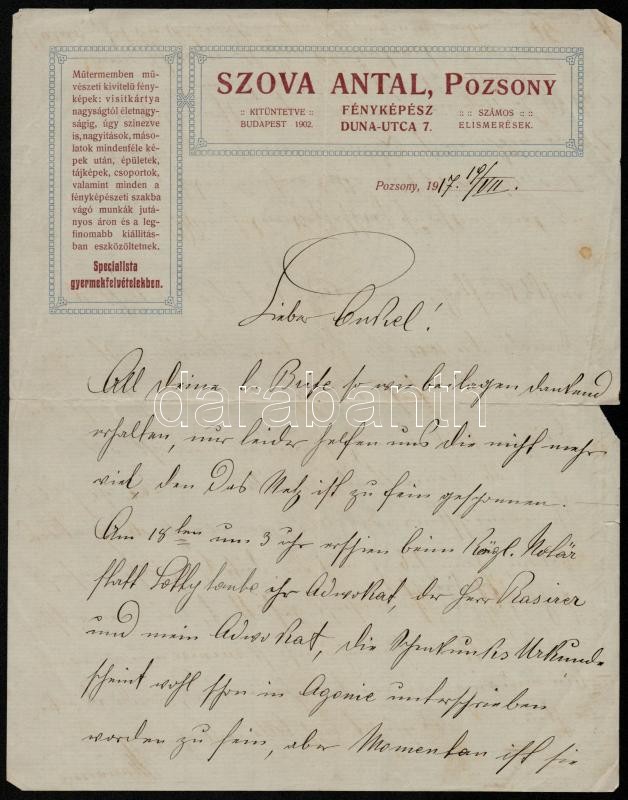 Műtermemben mű-
vészeti kivitelü fény-
képek: visitkártya
nagyságtól életnagy-
ságig, úgy szinezve
is, nagyitások, máso-
latok mindenféle ké-
pek után, épületek,
tájképek, csoportok,
valamint minden a
fényképészeti szakba
vágó munkák jutá-
nyos áron és a leg-
finomabb kiállitás-
ban eszközöltetnek.
Specialista
gyermekfelvételekben.
SZOVA ANTAL, POZSONY
:: KITÜNTETVE ::
BUDAPEST 1902.
FÉNYKÉPÉSZ
DUNA-UTCA 7.
:: :: SZÁMOS :: ::
ELISMERÉSEK.
Pozsony, 1917. 19/VII.
Lieber Onkel!
All deine l. Briefe so wie beilagen dankend
erhalten, nur leider helfen uns die nicht mehr
viel, den das Netz ist zu fein gesponnen.
Am 18ten um 3 uhr erschien beim Königl. Notär
statt Betty tante ihr Advokat, der Herr Rasirer
und mein Advokat, die Schenkunks Urkunde
scheint wohl schon in Agonie unterschrieben
worden zu sein, aber Momentan ist sie
darabanth